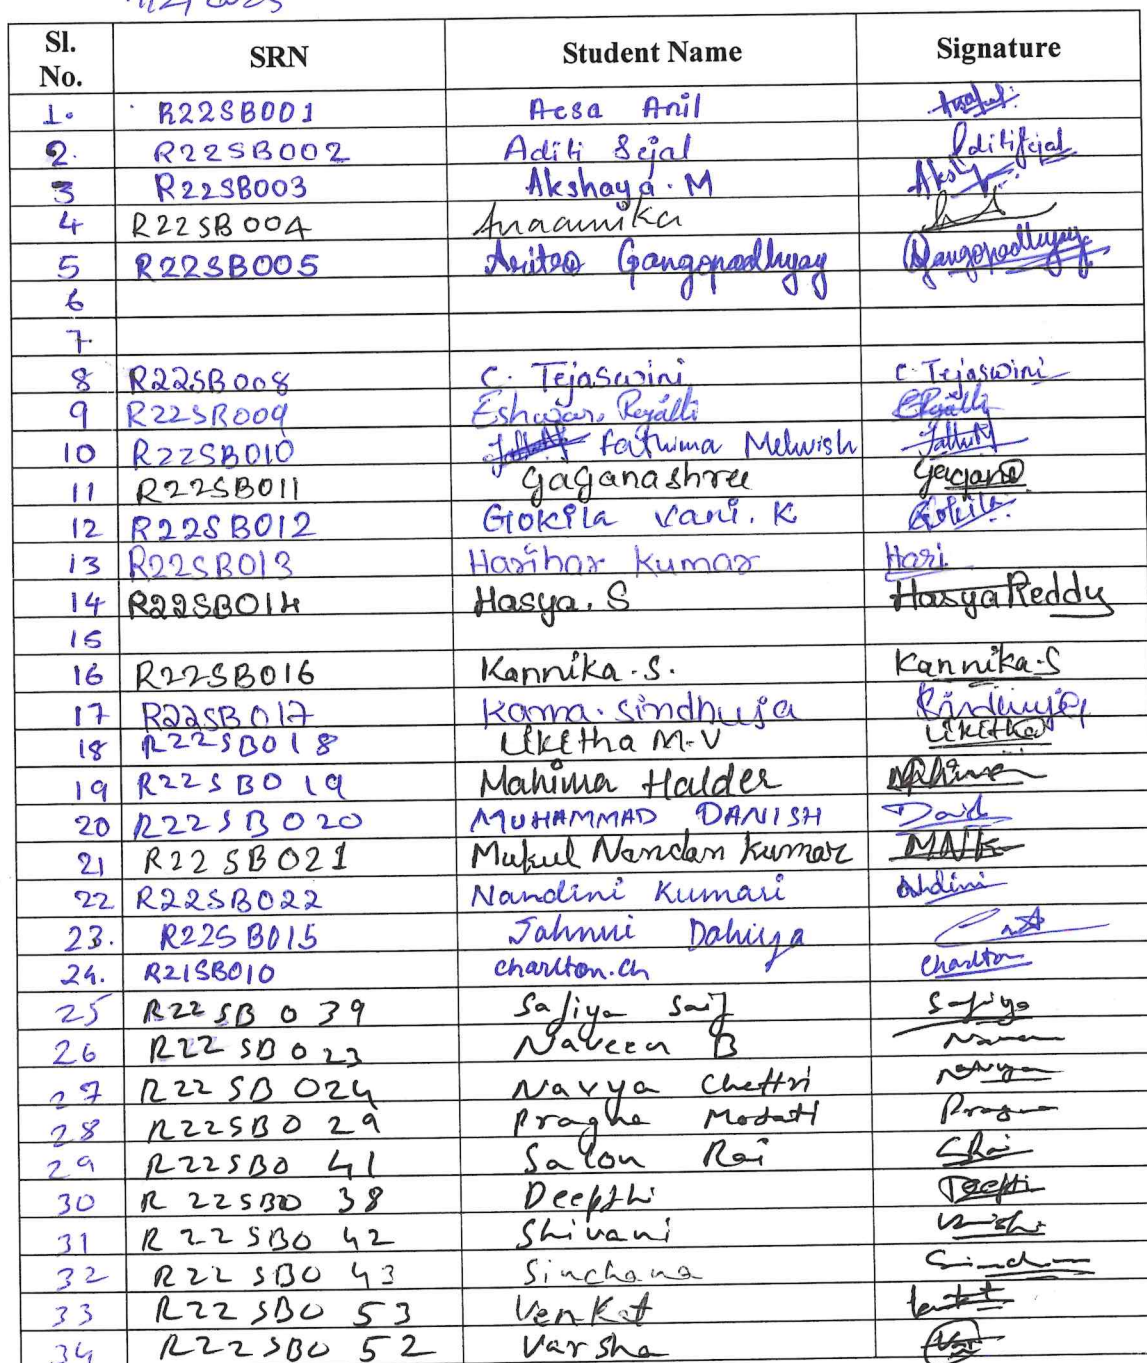 Sl. No. SRN Student Name Signature
1. R22SB001 Acsa Anil
2. R22SB002 Aditi Sejal Aditi Sejal
3 R22SB003 Akshaya. M
4 R22SB004 Anaamika
5 R22SB005 Gangopadhyay Gangopadhyay
6
7.
8 R22SB008 C. Tejaswini C. Tejaswini
9 R22SB009 Eshwar
10 R22SB010 Fathima Mehvish
11 R22SB011 Gaganashree Gagana
12 R22SB012 Gokila Vani. K Gokila
13 R22SB013 Harihar Kumar Hari
14 R22SB014 Hasya. S Hasya Reddy
15
16 R22SB016 Kannika. S. Kannika. S
17 R22SB017 Kama. Sindhuja Sindhuja
18 R22SB018 Likitha M.V Likitha
19 R22SB019 Mahima Halder Mahima
20 R22SB020 MUHAMMAD DANISH
21 R22SB021 Mukul Nandan Kumar MNK
22 R22SB022 Nandini Kumari
23. R22SB015 Jahnvi Dahiya
24. R21SB010 Charlton.ch Charlton
25 R22SB039 Safiya Saif Safiya
26 R22SB023 Naveen B
27 R22SB024 Navya Chettri Navya
28 R22SB029 Pragna
29 R22SB041 Salon Rai SRai
30 R22SB038 Deepthi Deepti
31 R22SB042 Shivani
32 R22SB043 Sinchana
33 R22SB053 Venkat
34 R22SB052 Varsha